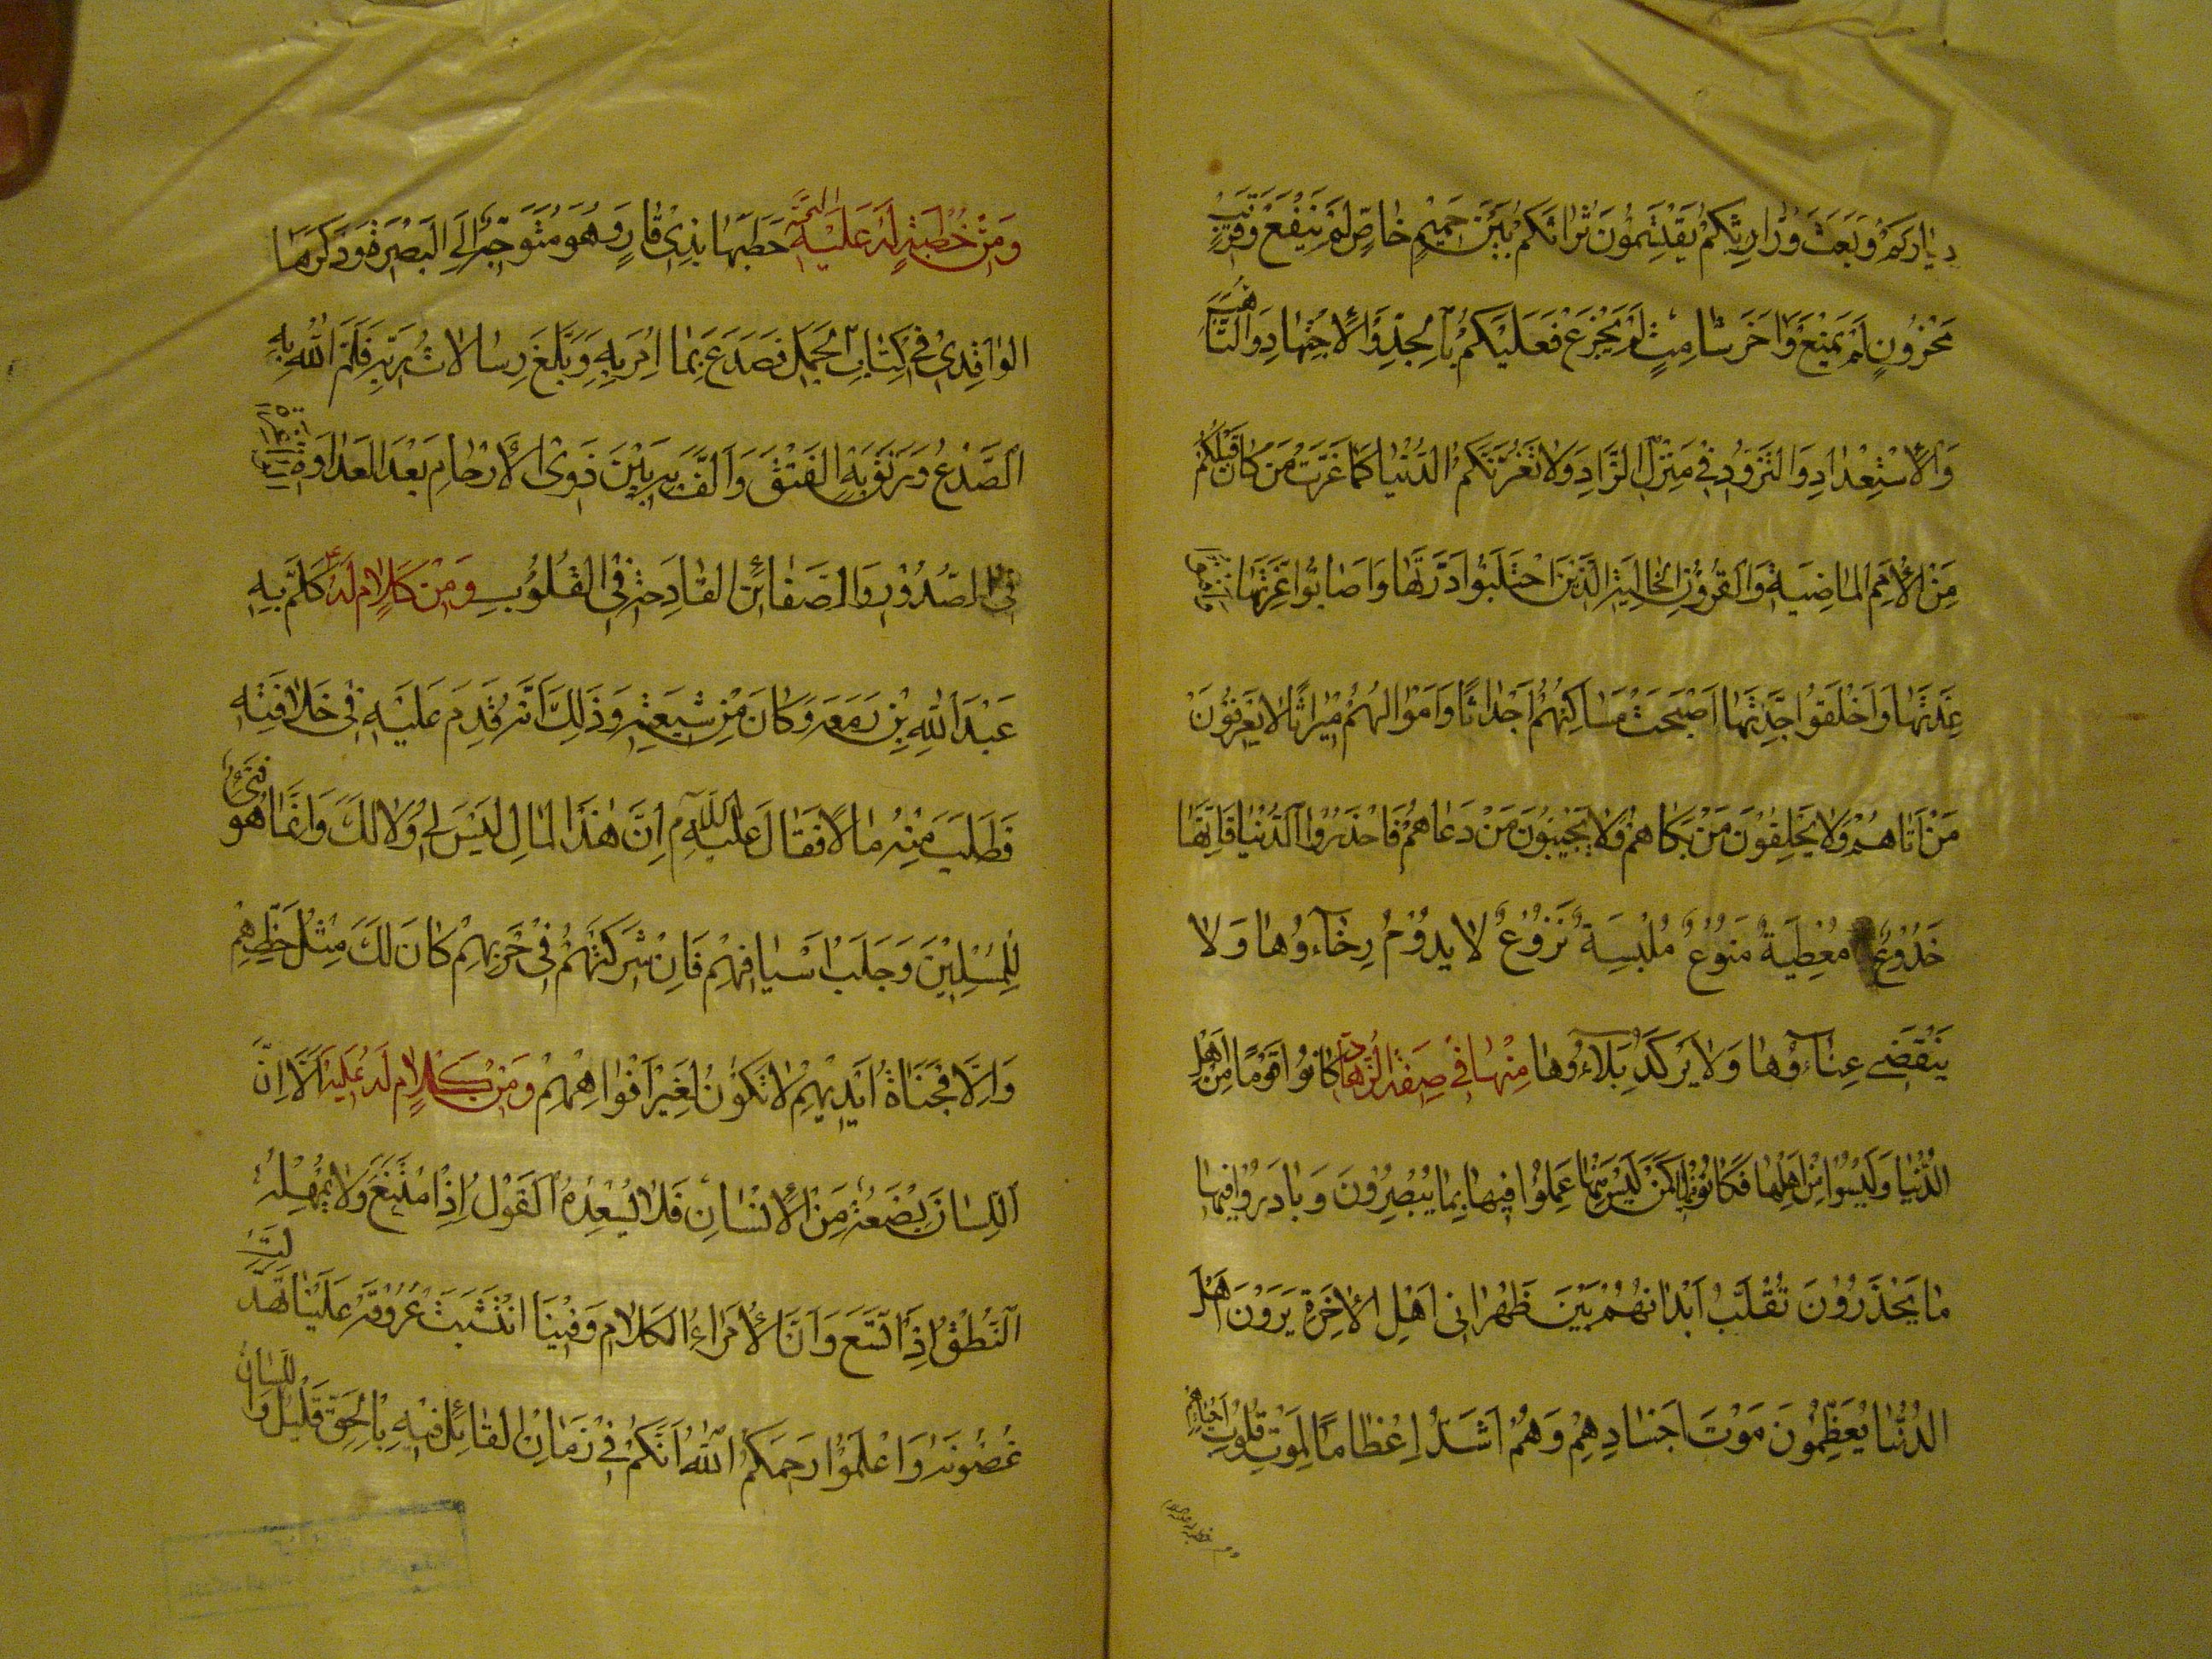 دِيَارَكُمْ وَبَعَثَ وُرَّاثَكُمْ يَقْتَسِمُونَ تُرَاثَكُمْ بَيْنَ حَمِيمٍ خَاصٍّ لَمْ يَنْفَعْ وَقَرِيبٍ
مَحْزُونٍ لَمْ يَمْنَعْ وَآخَرَ شَامِتٍ لَمْ يَجْزَعْ فَعَلَيْكُمْ بِالْجِدِّ وَالْاِجْتِهَادِ وَالتَّأَهُّبِ
وَالْاِسْتِعْدَادِ وَالتَّزَوُّدِ فِي مَنْزِلِ الزَّادِ وَلَا تَغُرَّنَّكُمُ الدُّنْيَا كَمَا غَرَّتْ مَنْ كَانَ قَبْلَكُمْ
مِنَ الْأُمَمِ الْمَاضِيَةِ وَالْقُرُونِ الْخَالِيَةِ الَّذِينَ احْتَلَبُوا دَرَّتَهَا وَأَصَابُوا غِرَّتَهَا
عِدَّتَهَا وَأَخْلَقُوا جِدَّتَهَا أَصْبَحَتْ مَسَاكِنُهُمْ أَجْدَاثًا وَأَمْوَالُهُمْ مِيرَاثًا لَا يَعْرِفُونَ
مَنْ أَتَاهُمْ وَلَا يَحْفِلُونَ مَنْ بَكَاهُمْ وَلَا يُجِيبُونَ مَنْ دَعَاهُمْ فَاحْذَرُوا الدُّنْيَا فَإِنَّهَا
خَدُوعٌ مُعْطِيَةٌ مَنُوعٌ مُلْبِسَةٌ نَزُوعٌ لَا يَدُومُ رَخَاءُهَا وَلَا
يَنْقَضِي عَنَاءُهَا وَلَا يَرْكُدُ بَلَاءُهَا مِنْهَا فِي صِفَةِ الزُّهَّادِ كَانُوا قَوْمًا مِنْ أَهْلِ
الدُّنْيَا وَلَيْسُوا مِنْ أَهْلِهَا فَكَانُوا فِيهَا كَمَنْ لَيْسَ مِنْهَا عَمِلُوا فِيهَا بِمَا يُبْصِرُونَ وَبَادَرُوا فِيهَا
مَا يَحْذَرُونَ تُقَلَّبُ أَبْدَانُهُمْ بَيْنَ ظَهْرَانَيْ أَهْلِ الْآخِرَةِ يَرَوْنَ أَهْلَ
الدُّنْيَا يُعَظِّمُونَ مَوْتَ أَجْسَادِهِمْ وَهُمْ أَشَدُّ إِعْظَامًا لِمَوْتِ قُلُوبِ أَحْيَائِهِمْ
وَمِنْ خُطْبَةٍ لَهُ عَلَيْهِ التَّحِيَّةُ خَطَبَهَا بِذِي قَارٍ وَهُوَ مُتَوَجِّهٌ إِلَى الْبَصْرَةِ وَذَكَرَهَا
الْوَاقِدِيُّ فِي كِتَابِ الْجَمَلِ فَصَدَعَ بِمَا أُمِرَ بِهِ وَبَلَّغَ رِسَالَاتِ رَبِّهِ فَلَمَّ اللهُ بِهِ
الصَّدْعَ وَرَتَقَ بِهِ الْفَتْقَ وَأَلَّفَ بِهِ بَيْنَ ذَوِي الْأَرْحَامِ بَعْدَ الْعَدَاوَةِ
فِي الصُّدُورِ وَالضَّغَائِنِ الْقَادِحَةِ فِي الْقُلُوبِ وَمِنْ كَلَامٍ لَهُ كَلَّمَ بِهِ
عَبْدَ اللهِ بْنِ زَمَعَةَ وَكَانَ مِنْ شِيعَتِهِ وَذَلِكَ أَنَّهُ قَدِمَ عَلَيْهِ فِي خِلَافَتِهِ
فَطَلَبَ مِنْهُ مَالًا فَقَالَ عَلَيْهِ السَّلَامُ إِنَّ هَذَا الْمَالَ لَيْسَ لِي وَلَا لَكَ وَإِنَّمَا هُوَ فَيْءٌ
لِلْمُسْلِمِينَ وَجَلَبُ أَسْيَافِهِمْ فَإِنْ شَرِكْتَهُمْ فِي حَرْبِهِمْ كَانَ لَكَ مِثْلُ حَظِّهِمْ
وَإِلَّا فَجَنَاةُ أَيْدِيهِمْ لَا تَكُونُ لِغَيْرِ أَفْوَاهِهِمْ وَمِنْ كَلَامٍ لَهُ عَلَيْهِ أَلَا إِنَّ
اللِّسَانَ بَضْعَةٌ مِنَ الْإِنْسَانِ فَلَا يُسْعِدُهُ الْقَوْلُ إِذَا امْتَنَعَ وَلَا يُمْهِلُهُ
النُّطْقُ إِذَا اتَّسَعَ وَإِنَّا لَأُمَرَاءُ الْكَلَامِ وَفِينَا انْتَشَبَتْ عُرُوقُهُ عَلَيْنَا تَهَدَّلَتْ
غُصُونُهُ وَاعْلَمُوا رَحِمَكُمُ اللهُ أَنَّكُمْ فِي زَمَانٍ الْقَائِلُ فِيهِ بِالْحَقِّ قَلِيلٌ وَاللِّسَانُ